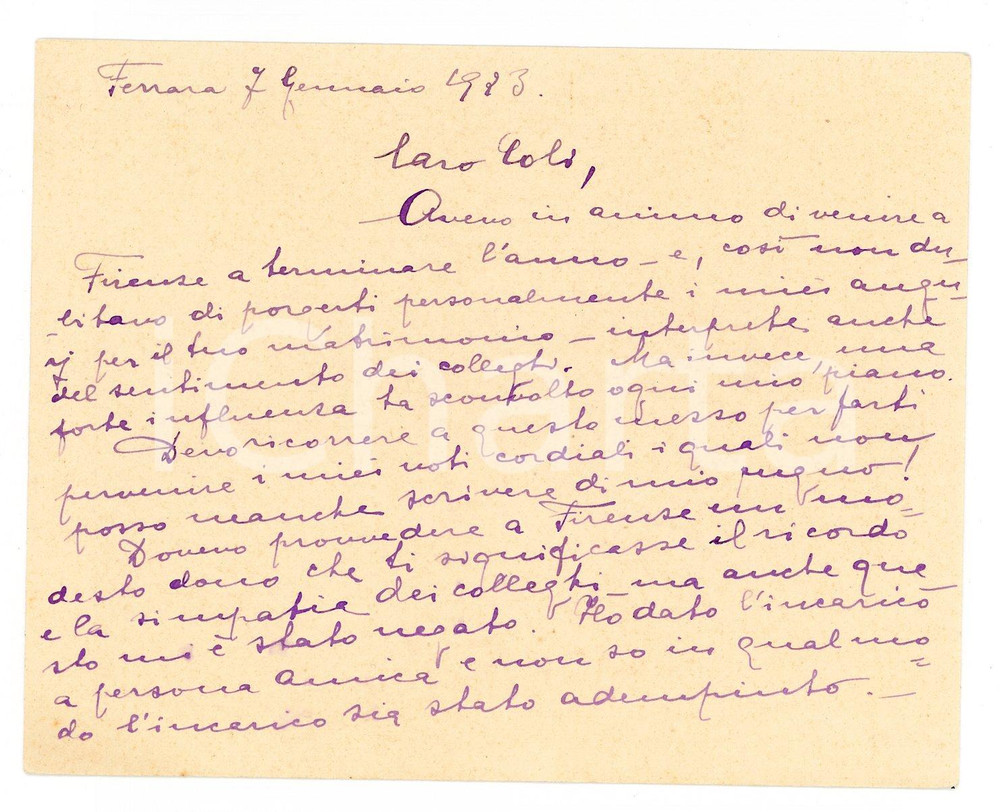 Ferrara 7 Gennaio 1923.
Caro Coli,
Avevo in animo di venire a
Firenze a terminare l'anno – e, così non du-
-bitavo di porgerti personalmente i miei augu-
rj per il tuo matrimonio – interprete anche
del sentimento dei colleghi. Ma invece, una
forte influenza ha sconvolto ogni mio piano.
Devo ricorrere a questo mezzo per farti
pervenire i miei voti cordiali i quali non
posso neanche scrivere di mio pugno!
Dovevo provvedere a Firenze un mo=
desto dono che ti significasse il ricordo
e la simpatia dei colleghi – ma anche que-
sto mi è stato negato. Ho dato l'incarico
a persona amica e non so in qual mo=
do l'incarico sia stato adempiuto. –
iCharta